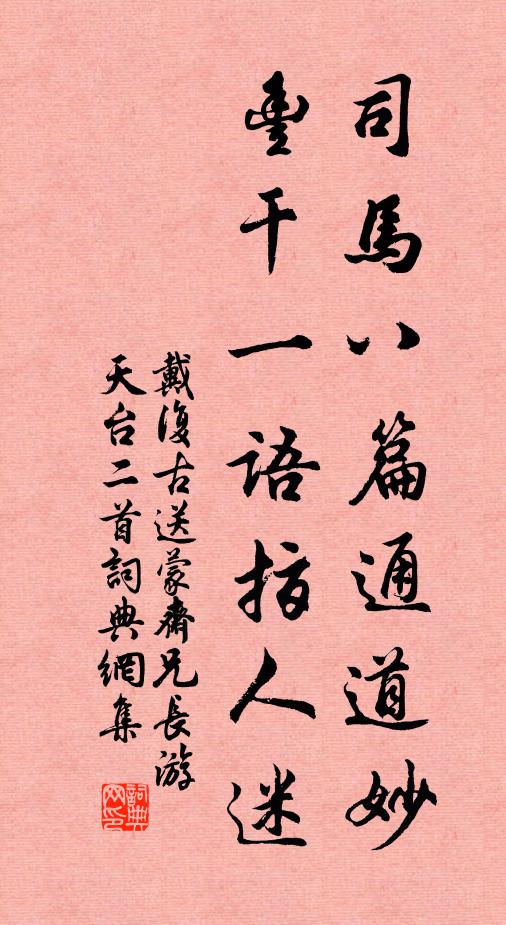 司馬八篇通道妙
豊干一語指人迷
戴復古送蒙齋兄長游
天台二首詞典網集
詞典
网印